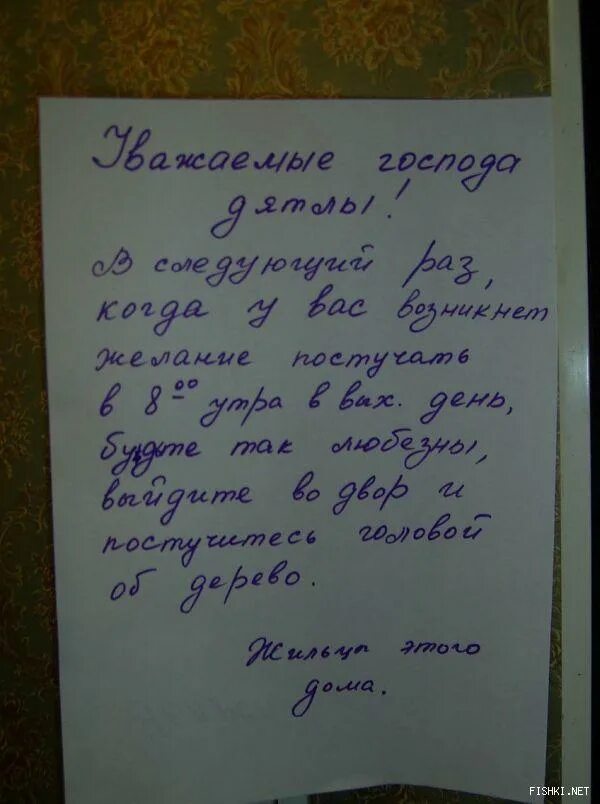 Уважаемые господа
дятлы!
В следующий раз,
когда у вас возникнет
желание постучать
в 8⁰⁰ утра в вых. день,
будьте так любезны,
выйдите во двор и
постучитесь головой
об дерево.
Жильцы этого
дома.
FISHKI.NET